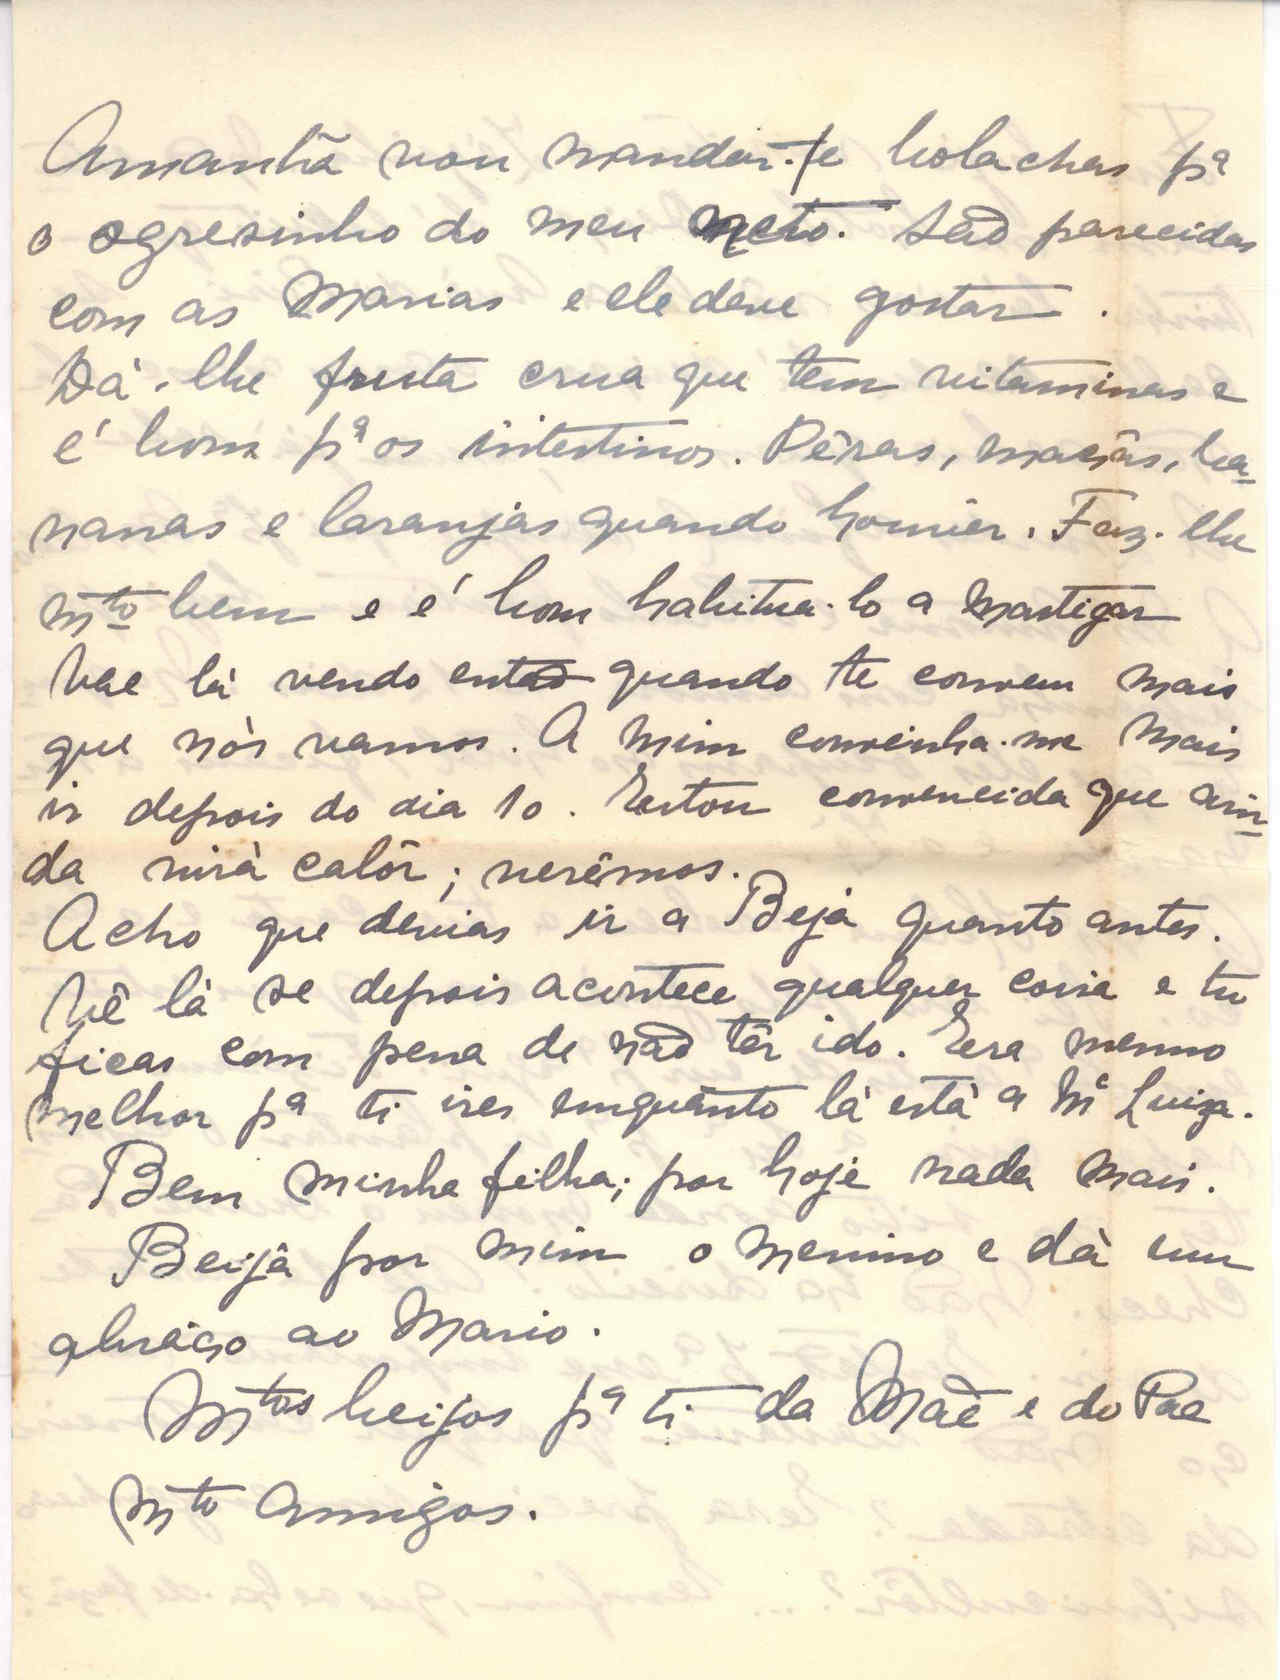 Amanhã vou mandar-te bolachas pª
o ogresinho do meu neto. São parecidas
com as Marias e ele deve gostar.
Dá-lhe fruta crua que tem vitaminas e
é bom pª os intestinos. Pêras, maçãs, ba-
nanas e laranjas quando houvér. Faz-lhe
mto bem e é bom habitua-lo a mastigar
Vae lá vendo então quando te convem mais
que nós vamos. A mim convinha-me mais
ir depois do dia 10. Estou convencida que ain-
da virá calôr; verêmos.
Acho que devias ir a Beja quanto antes.
Vê lá se depois acontece qualquer coisa e tu
ficas com pena de não têr ido. Era mesmo
melhor pª ti ires emquanto lá está a Mª Luiza.
Bem minha filha; por hoje nada mais.
Beija por mim o menino e dá um
abraço ao Mario.
Mtos beijos pª ti da Mãe e do Pae
mto amigos.